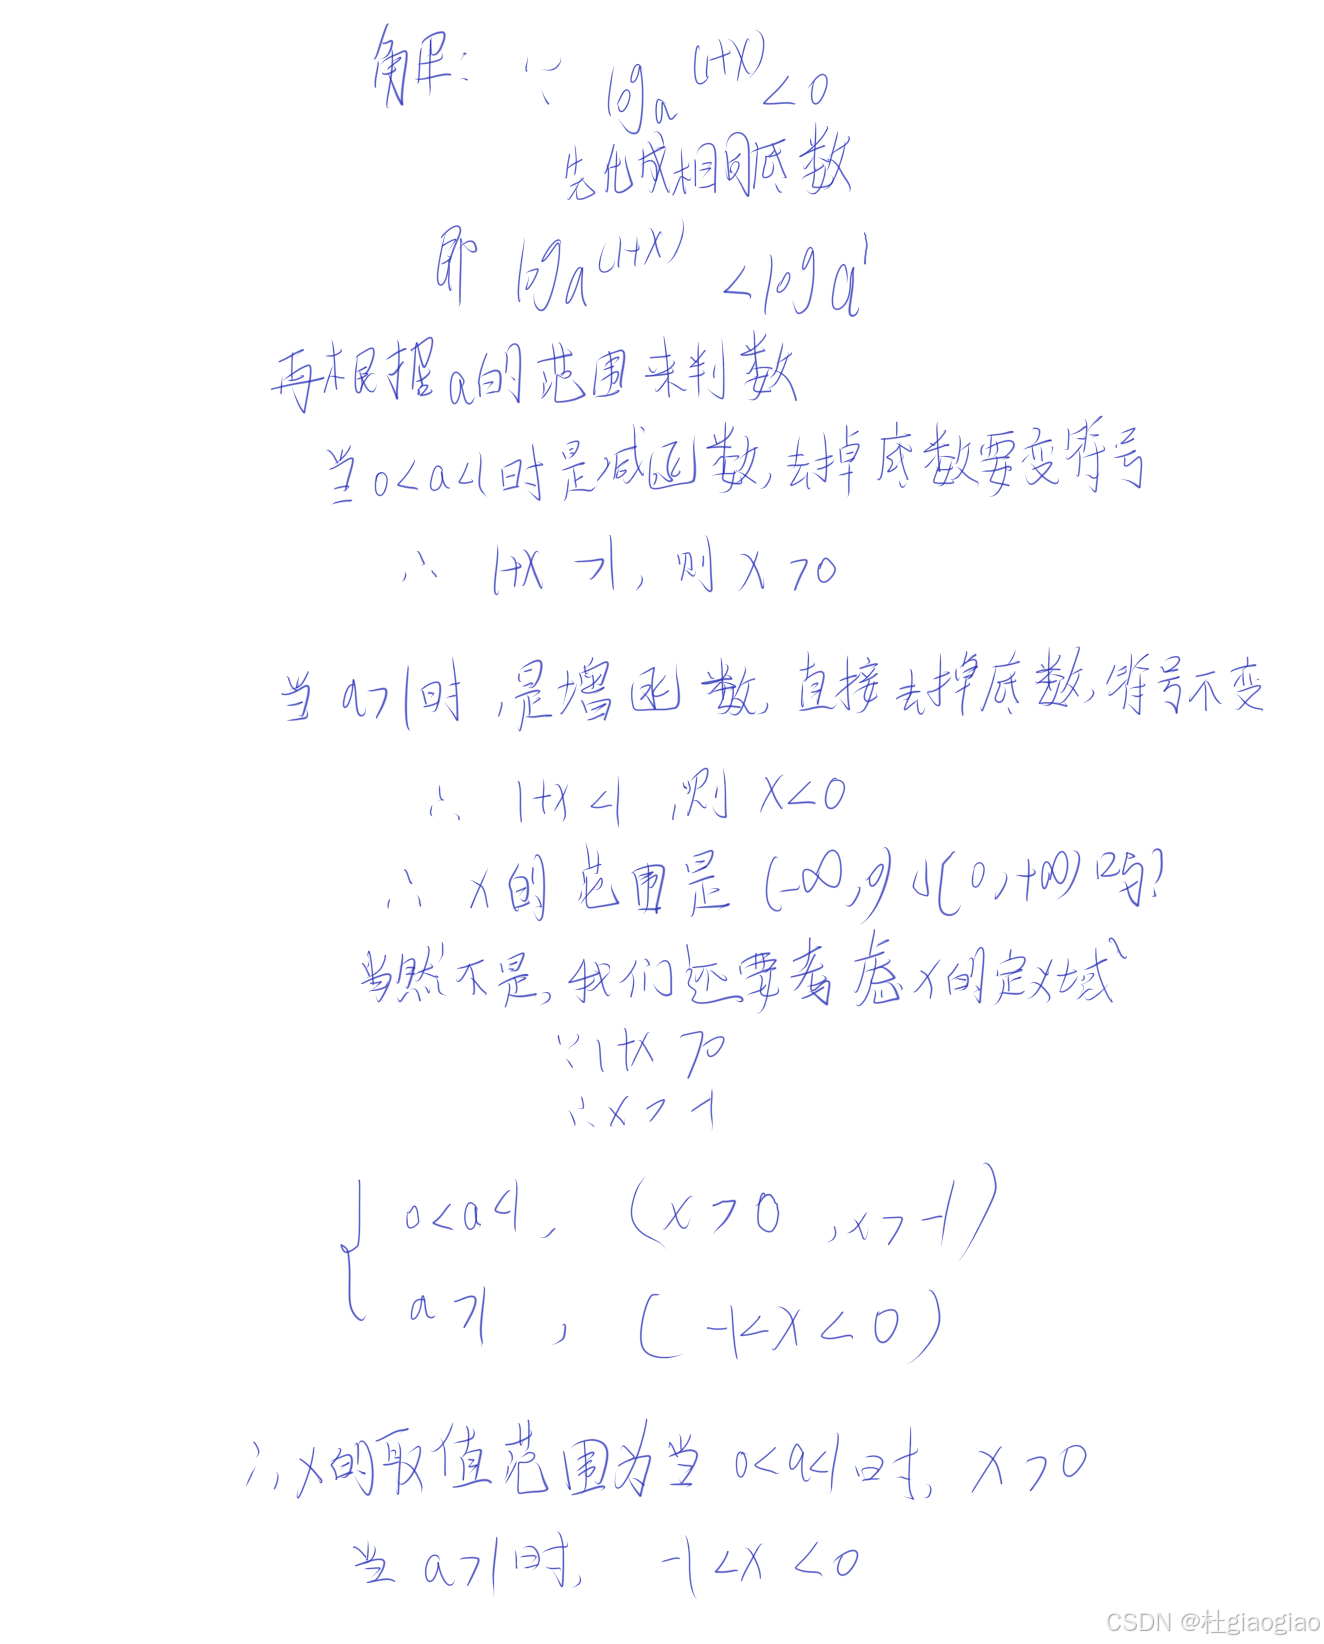 解: ∵ logₐ(1+x) < 0
先化成相同底数
即 logₐ(1+x) < logₐ1
再根据a的范围来判数
当 0<a<1 时是减函数,去掉底数要变符号
∴ 1+x >1, 则 x >0
当 a>1时,是增函数,直接去掉底数,符号不变
∴ 1+x <1 ,则 x<0
∴ x的范围是 (-∞,0)∪(0,+∞)吗?
当然不是,我们还要考虑x的定义域
∵ 1+x >0
∴ x > -1
{ 0<a<1, (x>0 ,x>-1)
a>1 , (-1<x<0)
∴x的取值范围为当 0<a<1时, x>0
当 a>1时, -1<x<0
CSDN @杜giaogiao